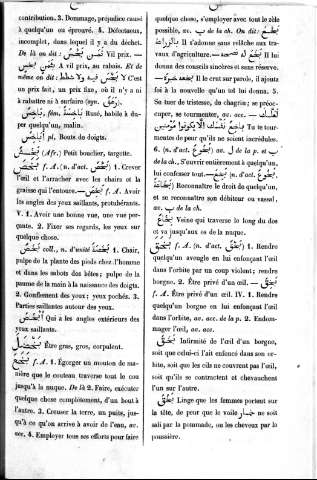 contribution. 3. Dommage, préjudice causé
à quelqu'un ou éprouvé. 4. Défectueux,
incomplet, dans lequel il y a du déchet.
De là on dit : ثمن بخس Vil prix. —
بثمن بخس A vil prix, au rabais. Et de
même on dit : لا بخس فيه ولا شطط C'est
un prix fait, un prix fixe, où il n'y a ni
à rabattre ni à surfaire
باخس, fém. باخسة Rusé, habile à du-
per quelqu'un, malin.
Bouts de doigts.
(Afr.) Petit bouclier, targette.
بخص f. A. (n. d'act. بخص) 1. Crever
l'œil et l'arracher avec les chairs et la
graisse qui l'entoure. — بخص f. A. Avoir
les angles des yeux saillants, protubérants.
V. 1. Avoir une bonne vue, une vue per-
çante. 2. Fixer ses regards, les yeux sur
quelque chose.
بخص coll., n. d'unité بخصة 1. Chair,
pulpe de la plante des pieds chez l'homme
et dans les sabots des bêtes; pulpe de la
paume de la main à la naissance des doigts.
2. Gonflement des yeux; yeux pochés. 3.
Parties saillantes autour des yeux.
أبخص Qui a les angles extérieurs des
yeux saillants.
Être gras, gros, corpulent.
بخع f. A. 1. Égorger un mouton de ma-
nière que le couteau traverse tout le cou
jusqu'à la nuque. De là 2. Faire, exécuter
quelque chose complétement, d'un bout à
l'autre. 3. Creuser la terre, un puits, jus-
qu'à ce qu'on arrive à avoir de l'eau, ac.
acc. 4. Employer tous ses efforts pour faire
quelque chose, s'employer avec tout le zèle
possible, ac. ب de la ch. On dit : بخع
Il s'adonne sans relâche aux tra-
vaux d'agriculture. — بخع نصحه Il lui
donne des conseils sincères et sans réserve.
— بخع خبره Il le crut sur parole, il ajouta
foi à la nouvelle qu'un tel lui donna. 5.
Se tuer de tristesse, de chagrin; se préoc-
cuper, se tourmenter, av. acc. — لعلك
باخع نفسك ألا يكونوا مؤمنين Tu te tour-
mentes de peur qu'ils ne soient incrédules.
6. (n. d'act. بخوع) ac. ل de la p. et ب
de la ch., S'ouvrir entièrement à quelqu'un,
lui confesser tout. — بخع (n. d'act. بخوع,
بخاعة) Reconnaître le droit de quelqu'un,
et se reconnaître son débiteur ou vassal,
ac. ب de la ch.
بخاع Veine qui traverse le long du dos
et va jusqu'aux os de la nuque.
بخق f. A. (n. d'act. بخق) 1. Rendre
quelqu'un aveugle en lui enfonçant l'œil
dans l'orbite par un coup violent; rendre
borgne. 2. Être privé d'un œil. — بخق
f. A. Être privé d'un œil. IV. 1. Rendre
quelqu'un borgne en lui enfonçant l'œil
dans l'orbite, ac. acc. de la p. 2. Endom-
mager l'œil, ac. acc.
بخق Infirmité de l'œil d'un borgne,
soit que celui-ci l'ait enfoncé dans son or-
bite, soit que les cils ne couvrent pas l'œil,
soit qu'ils se contractent et chevauchent
l'un sur l'autre.
بخنق Linge que les femmes portent sur
la tête, de peur que le voile خمار ne soit
sali par la pommade, ou les cheveux par la
poussière.